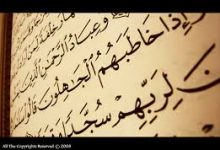 وَعِبَادُ الرَّحْمَٰنِ الَّذِينَ
وَإِذَا خَاطَبَهُمُ الْجَاهِلُونَ قَالُوا
لِرَبِّهِمْ سُجَّدًا
All The Copyrights Reserved © 2009